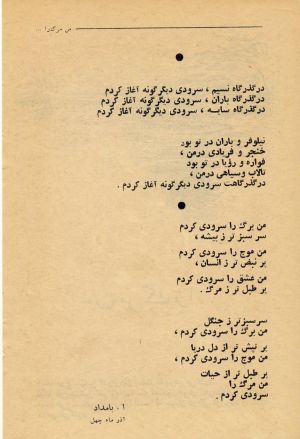 من مرگ را ...
در گذرگاه نسیم ، سرودی دیگرگونه آغاز کردم
در گذرگاه باران ، سرودی دیگرگونه آغاز کردم
در گذرگاه سایه ، سرودی دیگرگونه آغاز کردم
نیلوفر و باران در تو بود
خنجر و فریادی در من ،
فواره و رؤیا در تو بود
تالاب و سیاهی در من .
در گذرگاهت سرودی دیگرگونه آغاز کردم .
من برگ را سرودی کردم
سر سبز تر ز بیشه ،
من موج را سرودی کردم
پر نبض تر ز انسان ،
من عشق را سرودی کردم
پر طبل تر ز مرگ .
سرسبز تر ز جنگل
من برگ را سرودی کردم ،
پر تپش تر از دل دریا
من موج را سرودی کردم ،
پر طبل تر از حیات
من مرگ را
سرودی کردم .
ا . بامداد
آذر ماه چهل